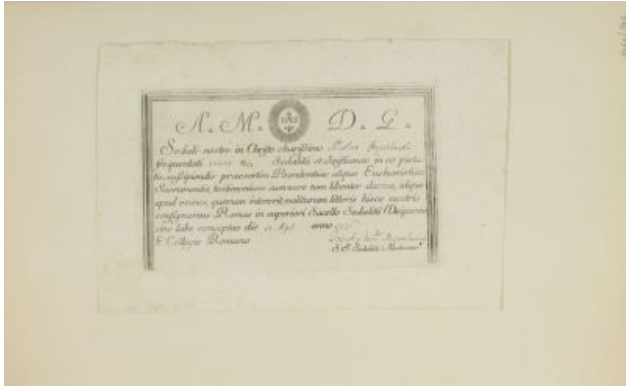 A. M. IHS D. G.
Sodali nostro in Christo charissimo
frequentati Sodalitii et christianae in eo pieta
tis, suscipiendis praesertim Poenitentiae atque Eucharistiae
Sacramentis, testimonium cum vero tum libenter damus, idque
apud omnes, quorum intererit, nostris
consignamus Romae in superiori Sacello Sodalitii Deiparae
sine labe conceptae die anno
E Collegio Romano
S. J. Sodalitii Moderator